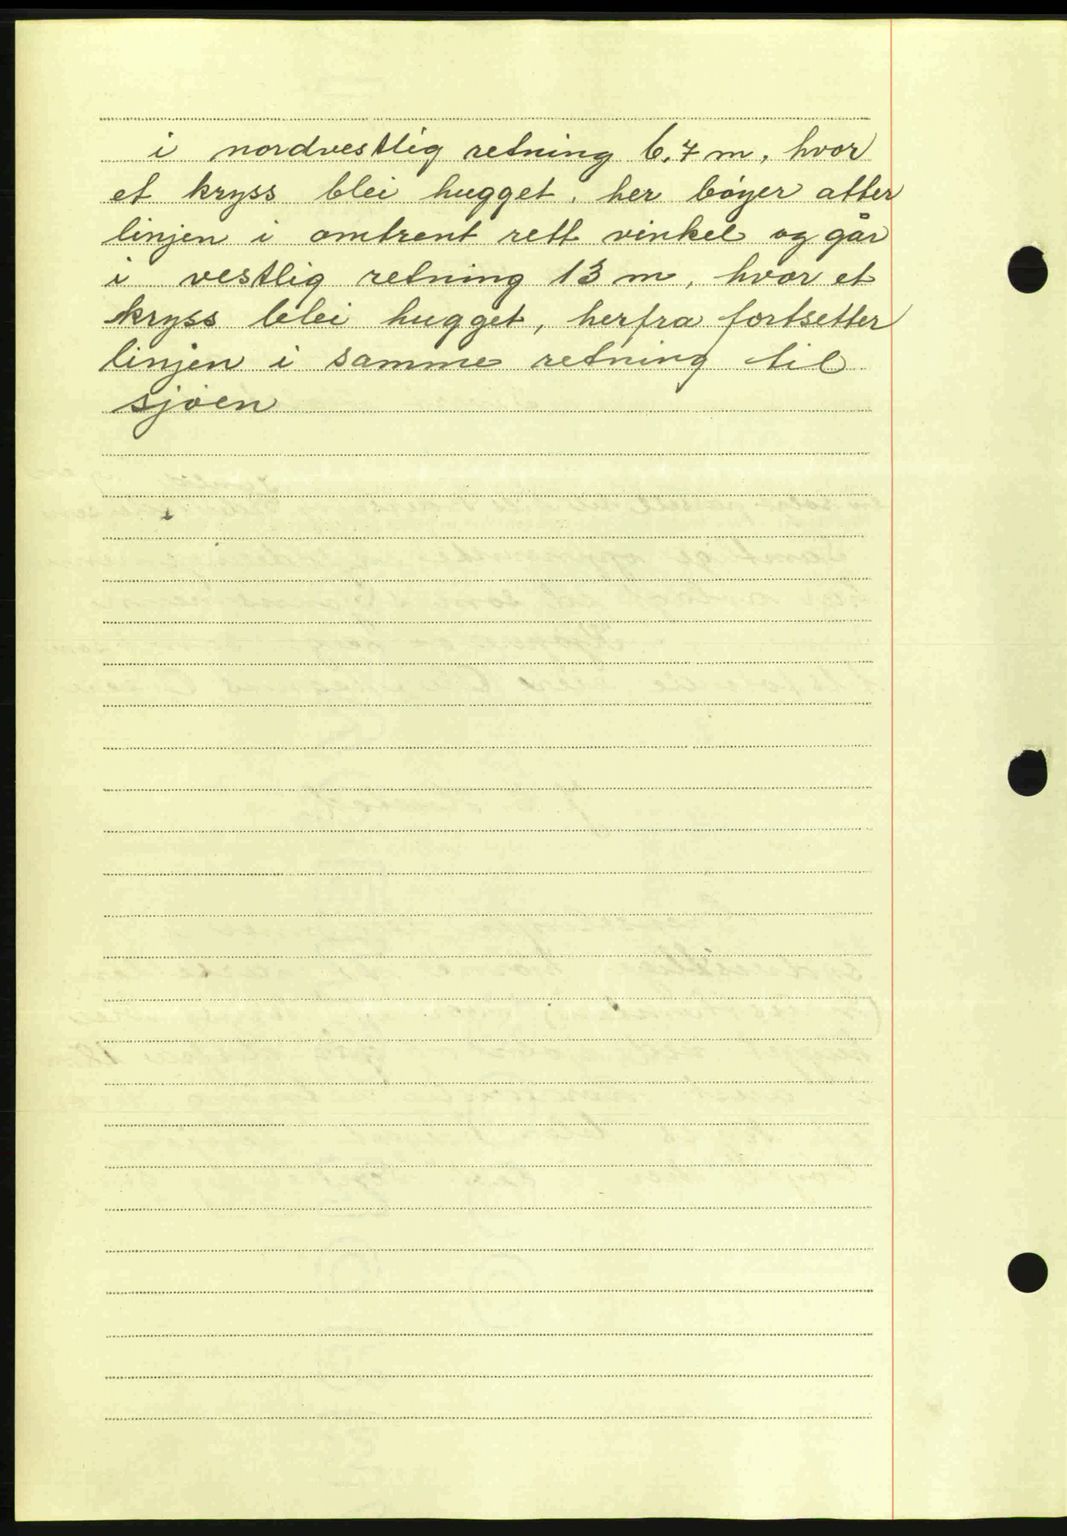 i nordvestlig retning 6,7 m, hvor
et kryss blei hugget, her bøyer atter
linjen i omtrent rett vinkel og går
i vestlig retning 13 m, hvor et
kryss blei hugget, herfra fortsetter
linjen i samme retning til
sjøen